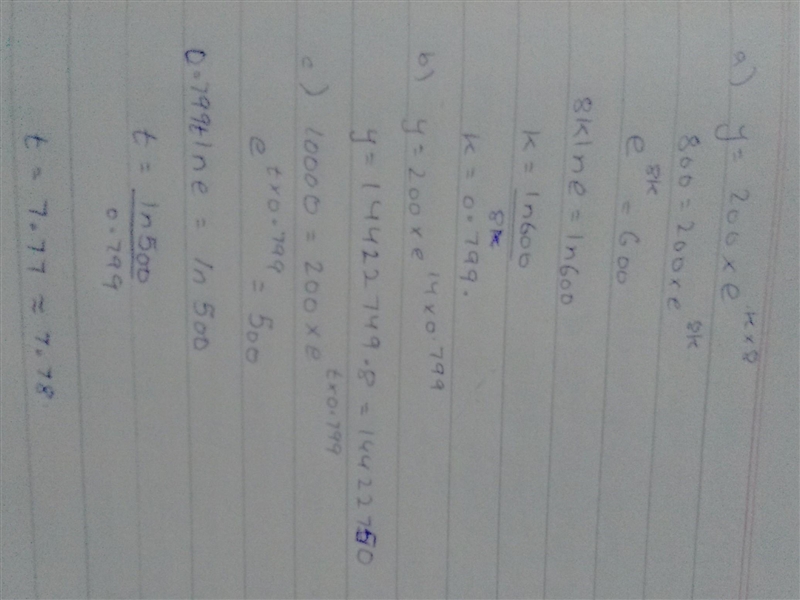 a) y = 200 x e^kx8
800 = 200 x e^8k
e^8k = 600
8k ln e = ln 600
k = ln600/8
k = 0.799.
b) y = 200 x e^14x0.799
y = 14422749.8 = 14422750
c) 10000 = 200 x e^tx0.799
e^tx0.799 = 500
0.799t ln e = ln 500
t = ln 500/0.799
t = 7.77 ≈ 7.78.